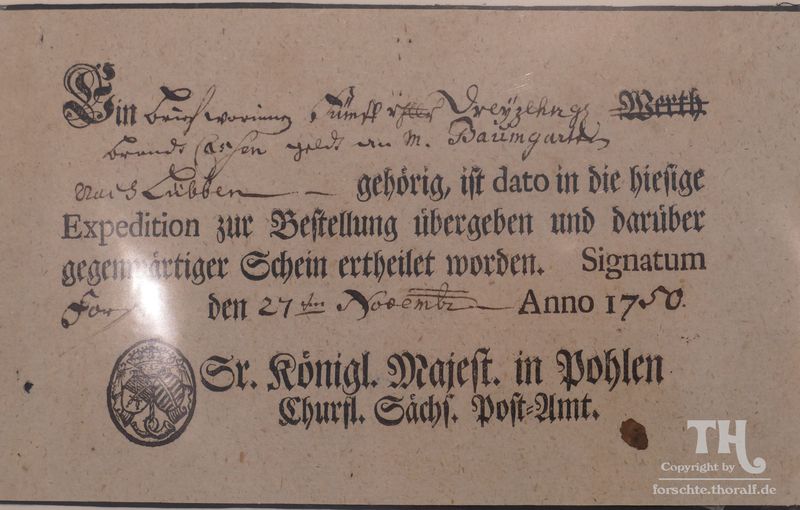 Ein brief worinnen Fünff Dreyzehn gl Werth
gelt an M. Baumgarten
nach Lübben gehörig, ist dato in die hiesige
Expedition zur Bestellung übergeben und darüber
gegenwärtiger Schein ertheilet worden. Signatum
den 27 ten Novembr Anno 1750.
Sr. Königl. Majest. in Pohlen
Churfl. Sächs. Post-Amt.
TH
Copyright by
forschte.thoralf.de